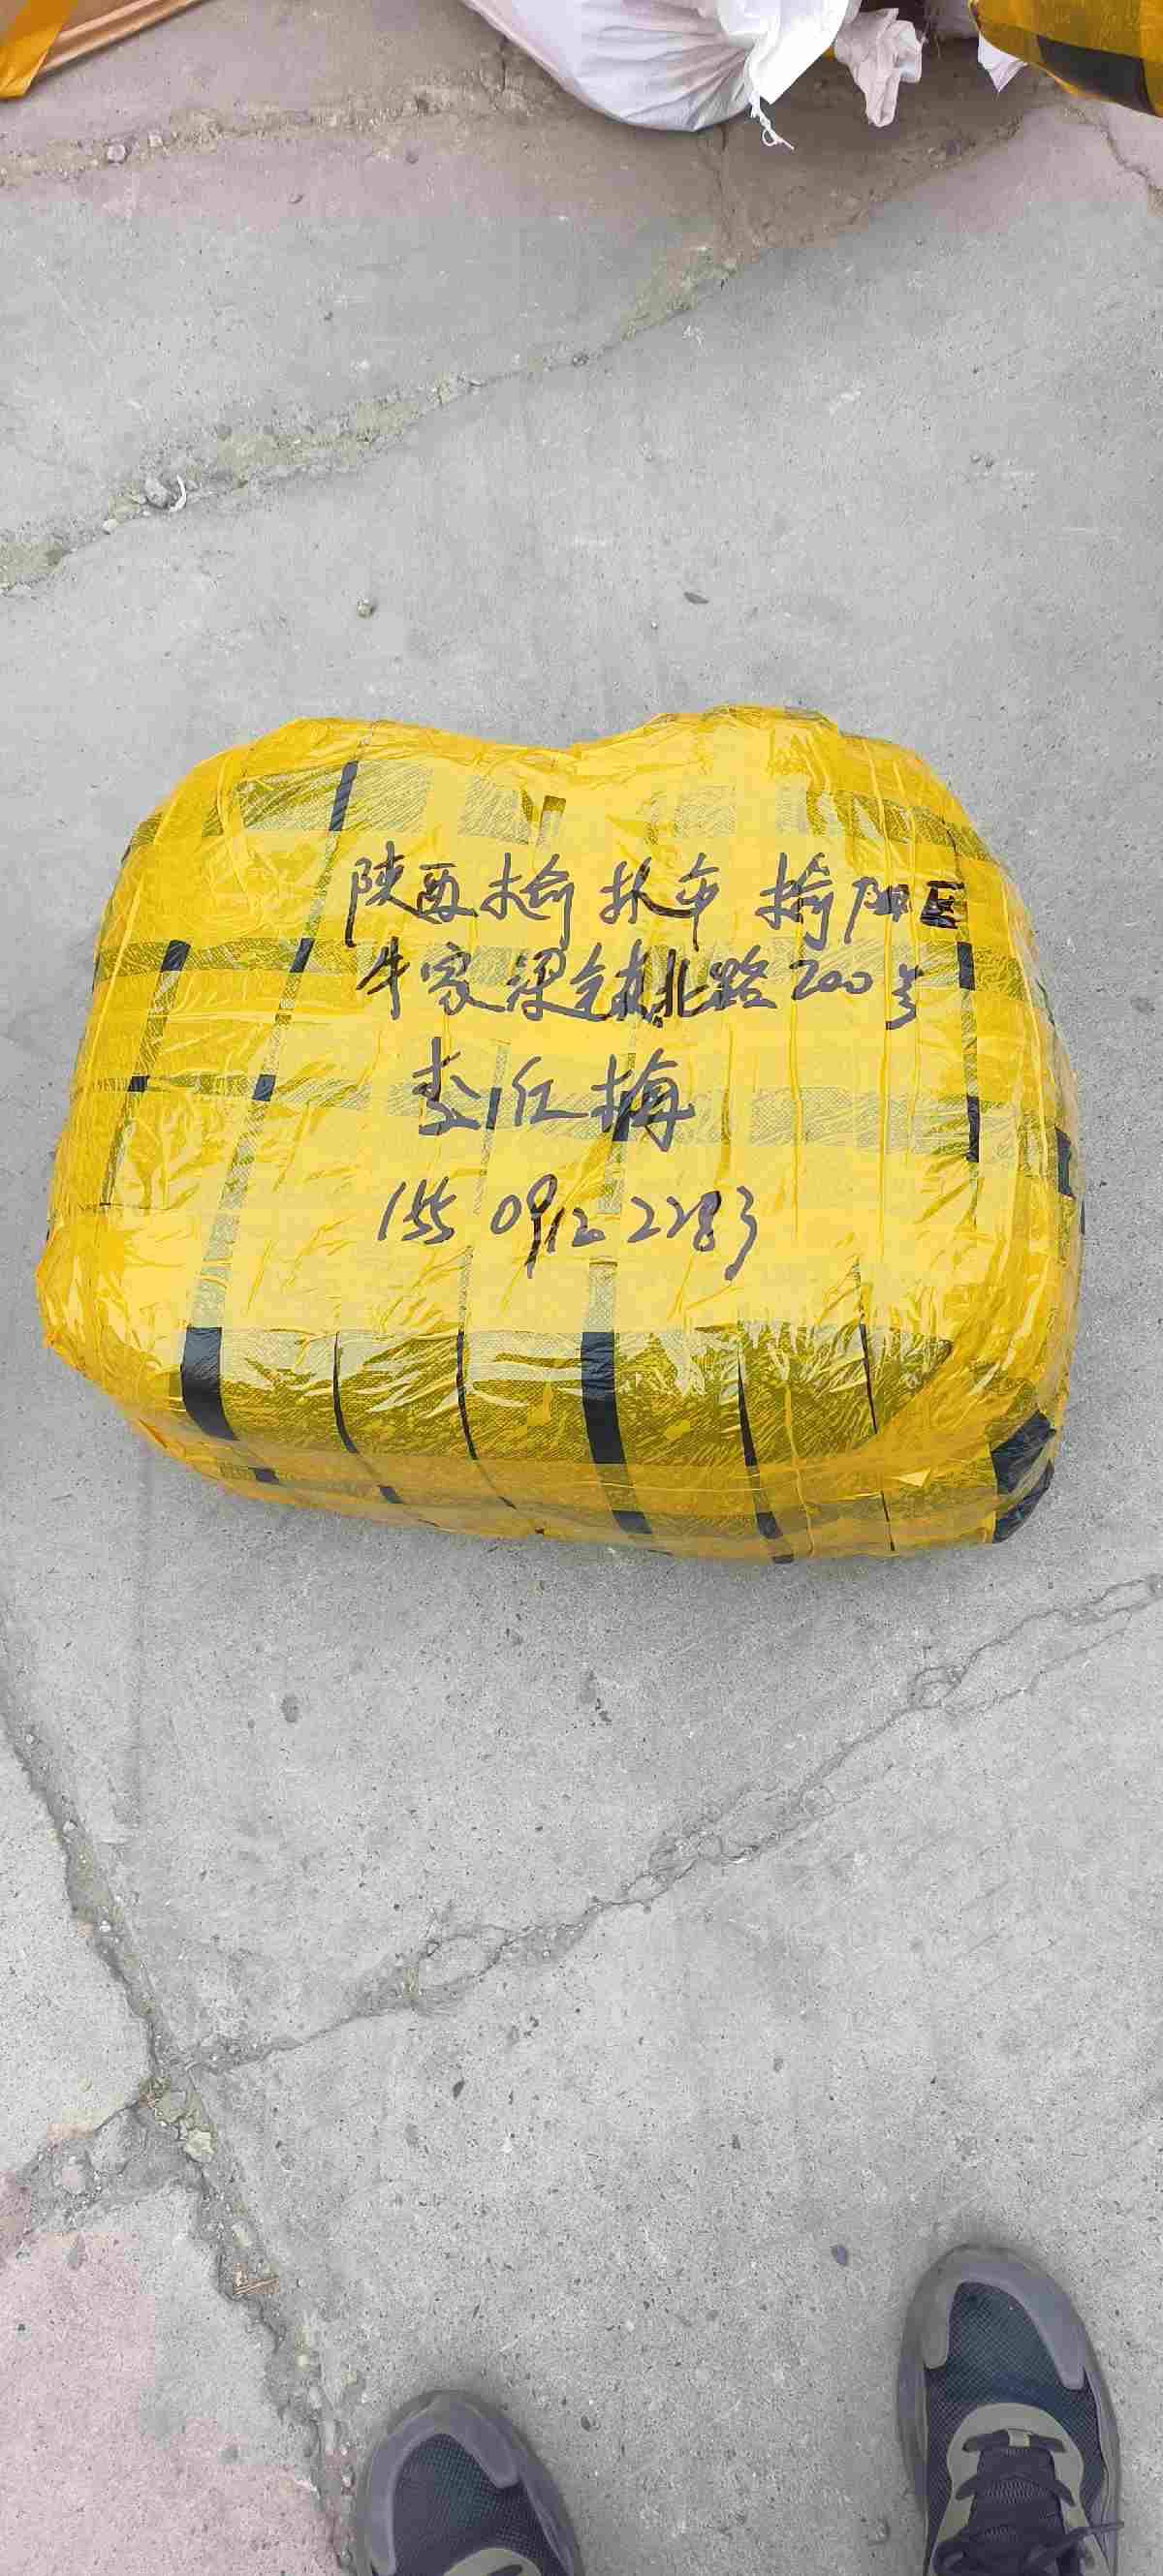 陕西榆林市 榆阳区
牛家梁 北路200号
李红梅
155 0912 2283